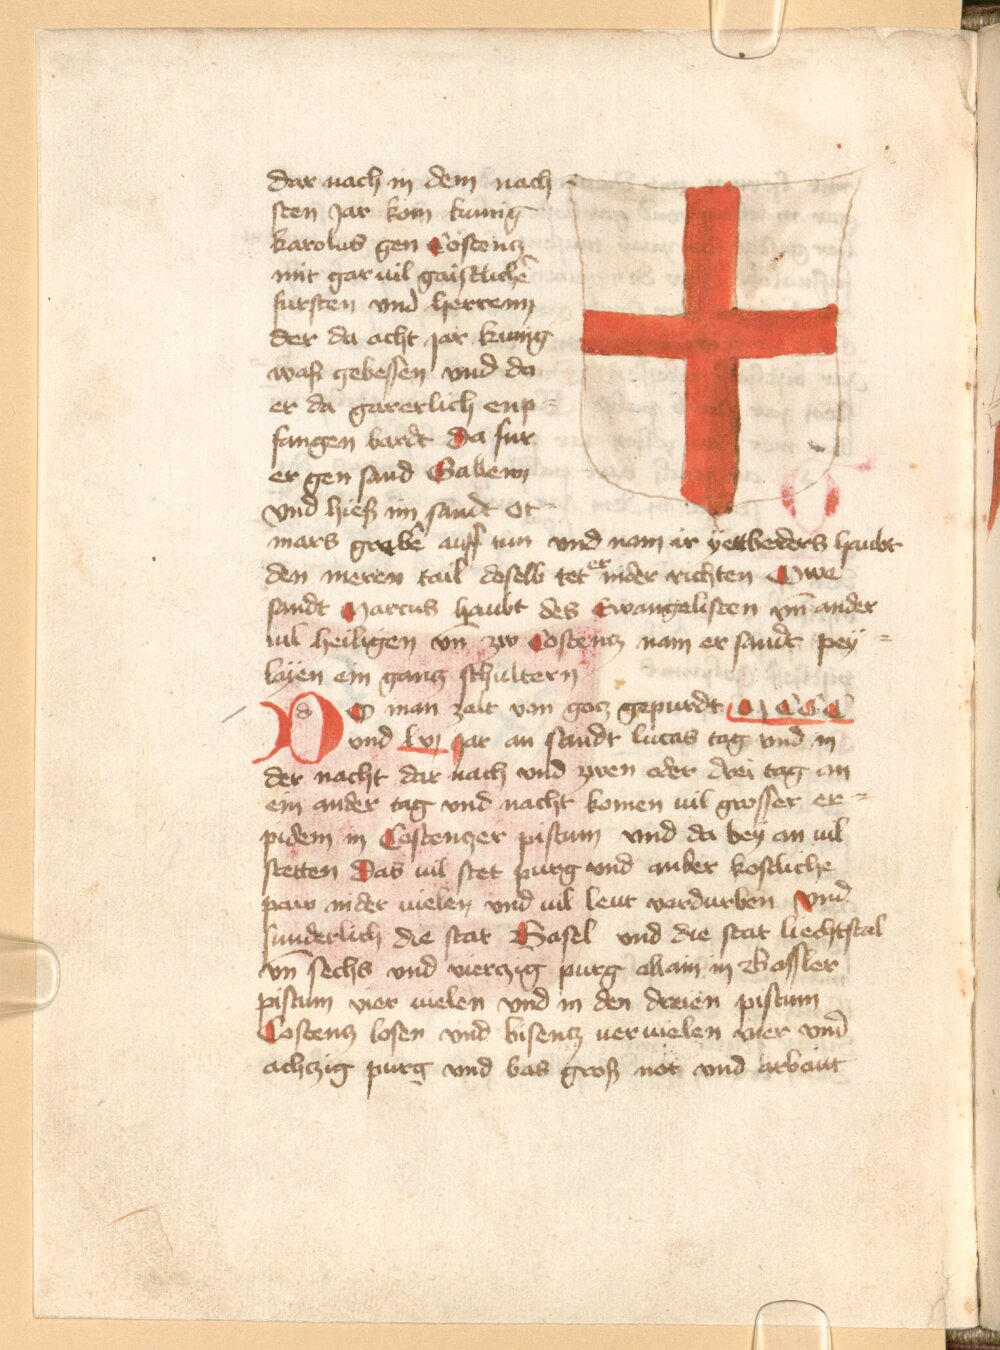 dar nach in dem nach
sten Jar kom kunig
karolus gen Costentz
mit gar uil gaistlichē
fursten vnd herrenn
der da acht jar kunig
waß gebessen vnd do
er da gar erlich enp-
fangen bardt Da fur
er gen sand Gallenn
vnd hieß im sandt Ot-
mars grabē auff tun vnd nam ir yettbeders haubt
den meren tail deselb tet er in der richten Owe
sandt Marcus haubt des Ewangelisten vnd ander
uil heiligen vn̄ zw Costentz nam er sandt pey-
layen ein gantz schultern
Do man zalt von gocz gepurdt M CCC
vnd lvj Jar an sandt lucas tag vnd in
der nacht dar nach vnd zwen oder drei tag an
ein ander tag vnd nacht komen uil grosser er-
pidem in Costenczer pistum vnd da bey an uil
stetten Das uil stet purg vnd ander kostliche
paw nider uielen vnd uil leut verdurben Vnd
sunderlich die stat Basel vnd die stat liechtstal
vn̄ sechs vnd vierczig purg allain in Bassler
pistum vier uielen vnd in den dreien pistum
Costentz losen vnd bisentz veruielen vier vnd
achczig purg vnd bas groß not vnd arbait